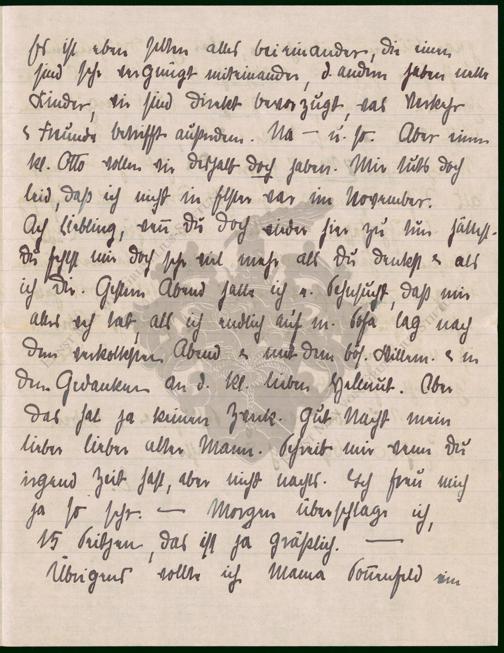 Es ist eben selten alles beieinander, die einen
sind sehr vergnügt miteinander, d. andern haben nette
Kinder, wir sind direkt bevorzugt, was Verkehr
& Freunde betrifft außerdem. Na — u. so. Aber einen
kl. Otto wollen wir deshalb doch haben. Mir tuts doch
leid, daß ich nicht in Elster war im November.
Ach Liebling, wenn Du doch wieder hier zu tun hättest.
Du fehlst mir doch sehr viel mehr als Du denkst & als
ich Dir. Gestern Abend hatte ich Sehnsucht, daß mir
alles weh tat, als ich endlich auf m. Sofa lag nach
dem verkorksten Abend & mit dem bös. Willem. & in
den Gedanken an d. kl. lieben Hellmut. Aber
das hat ja keinen Zweck. Gut Nacht mein
lieber lieber alter Mann. Schreib mir wenn Du
irgend Zeit hast, aber nicht nachts. Ich freu mich
ja so sehr. — Morgen überschlage ich,
15 Seitzen, das ist ja gräßlich. —
Übrigens wollte ich Mama Sonnenfeld im